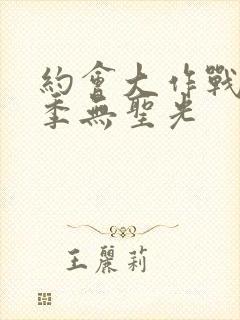 約會大作戰
季無聖光
王麗莉